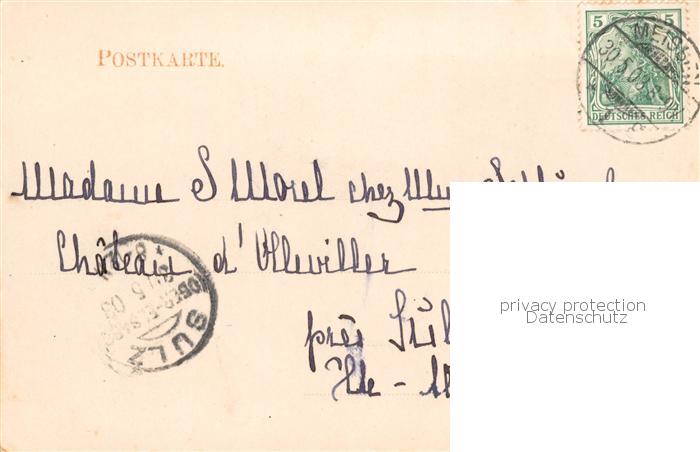 POSTKARTE.
5 5
DEUTSCHES REICH
30.5.0
Madame S Morel chez
Château d'Olleviller
près
Hte -
SULZ
(OBER-ELSASS)
privacy protection
Datenschutz